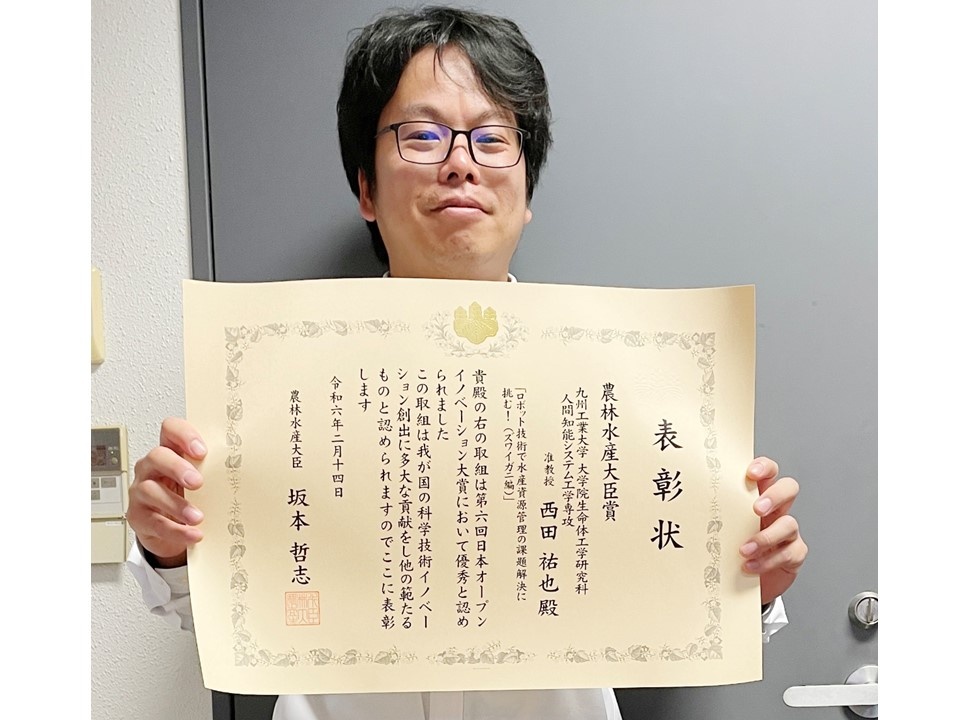 表彰状
農林水産大臣賞
九州工業大学 大学院生命体工学研究科
人間知能システム工学専攻
准教授 西田 祐也殿
「ロボット技術で水産資源管理の課題解決に
挑む!(ズワイガニ編)」
貴殿の右の取組は第六回日本オープン
イノベーション大賞において優秀と認め
られました
この取組は我が国の科学技術イノベー
ション創出に多大な貢献をし他の範たる
ものと認められますのでここに表彰
します
令和六年二月十四日
農林水産大臣 坂本 哲志